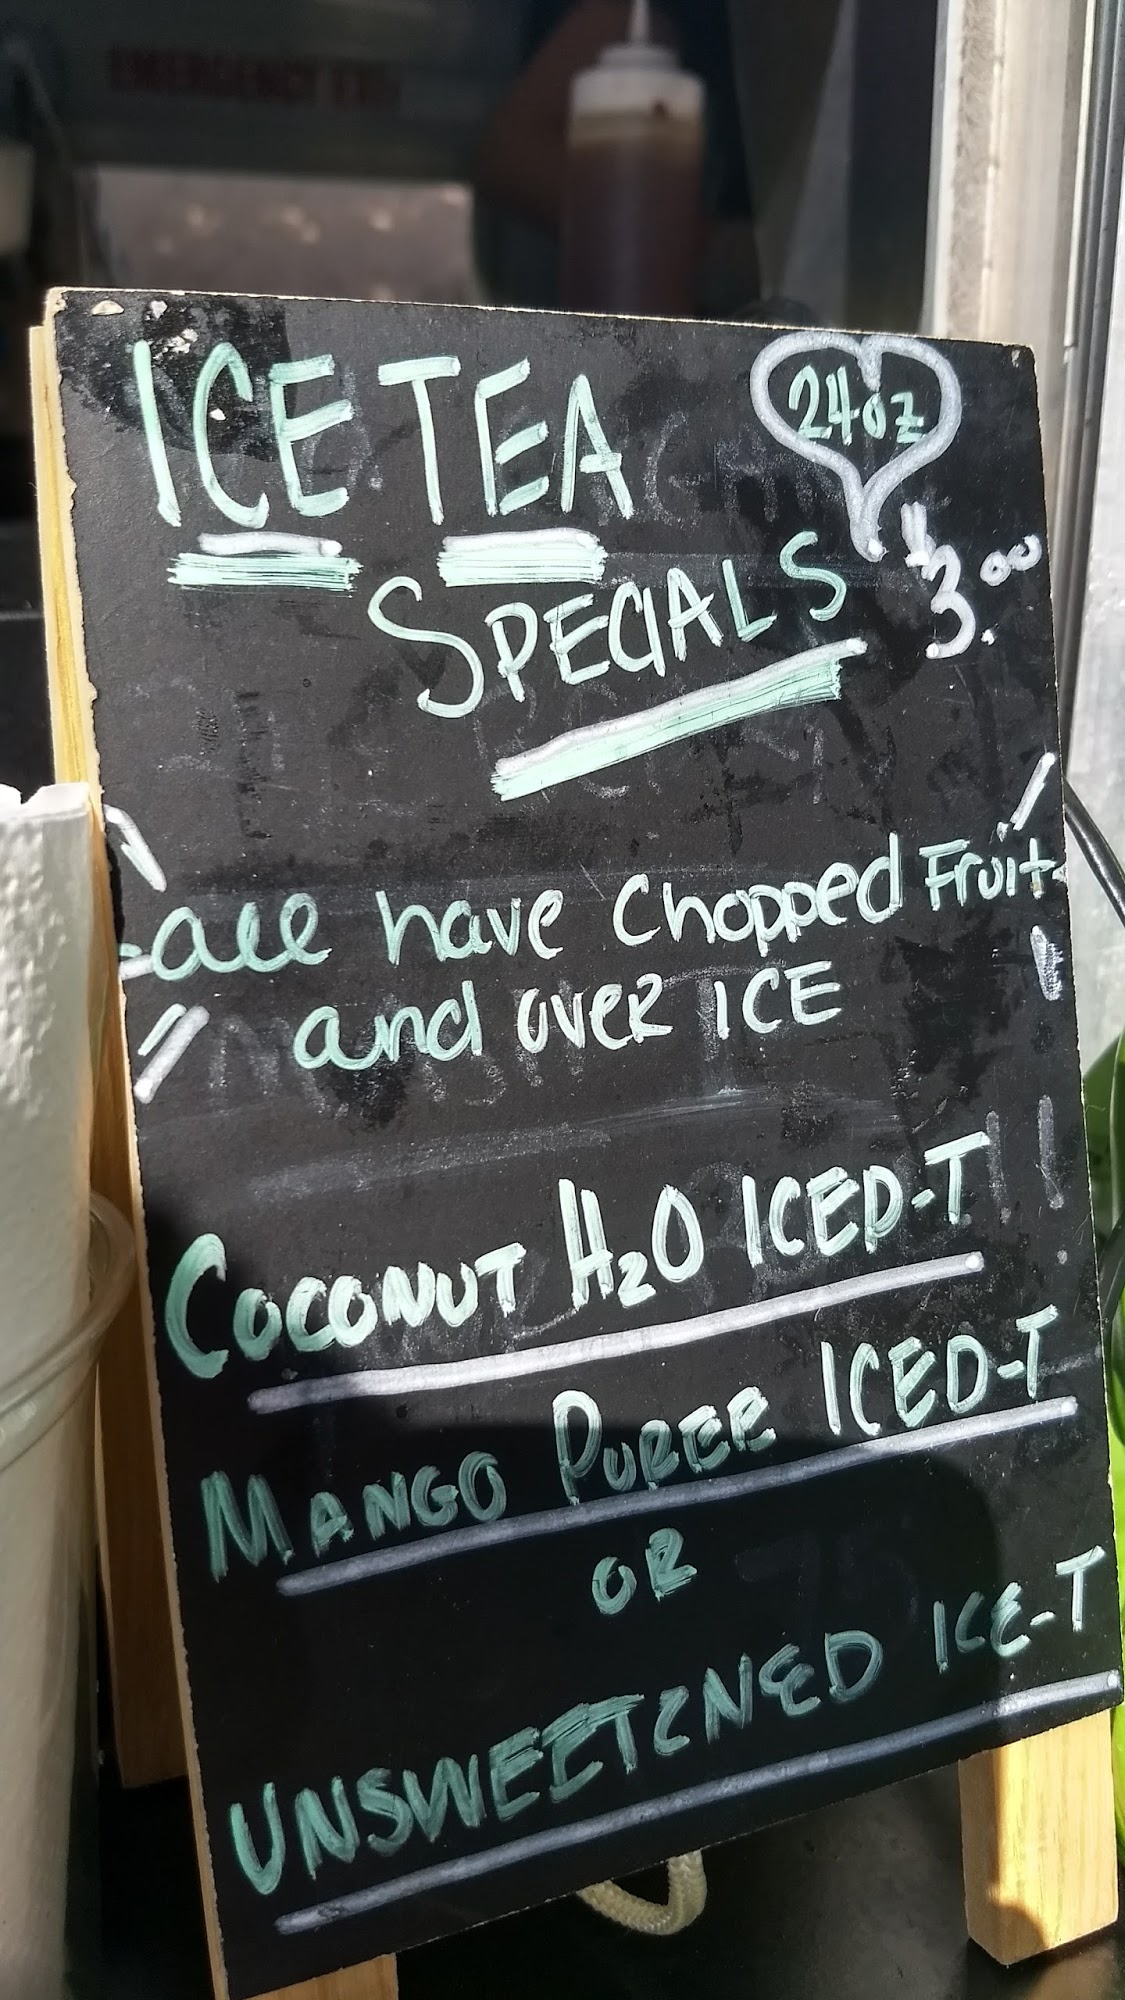 EMERGENCY EXIT
ICE TEA
24oz
SPECIALS
$3.00
all have Chopped Fruit
and over ICE
COCONUT H₂O ICED-T
MANGO PUREE ICED-T
OR
UNSWEETENED ICE-T